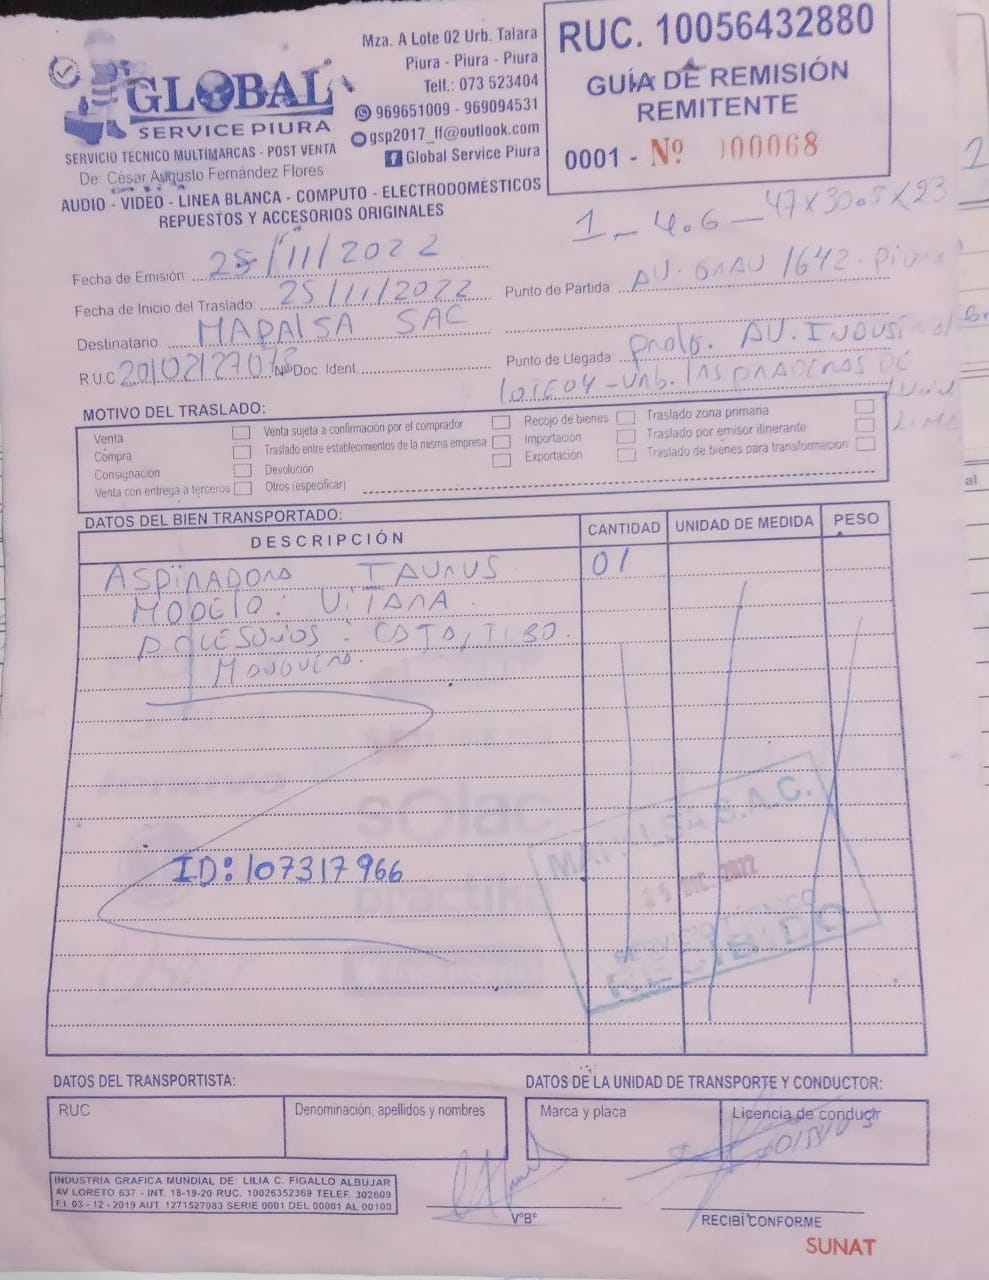 GLOBAL
SERVICE PIURA
SERVICIO TÉCNICO MULTIMARCAS - POST VENTA
De: César Augusto Fernández Flores
AUDIO - VIDEO - LINEA BLANCA - COMPUTO - ELECTRODOMÉSTICOS
REPUESTOS Y ACCESORIOS ORIGINALES
Mza. A Lote 02 Urb. Talara
Piura - Piura - Piura
Telf.: 073 523404
969651009 - 969094531
gsp2017_ff@outlook.com
Global Service Piura
RUC. 10056432880
GUÍA DE REMISIÓN
REMITENTE
0001 - Nº 000068
1 - 4.6 - 47X30.5X23
Fecha de Emisión 25/11/2022
Fecha de Inicio del Traslado: 25/11/2022
Punto de Partida: AV. GRAU 1642 - Piura
Destinatario MAPALSA SAC
R.U.C 20102127073 Nº Doc. Ident.
Punto de Llegada Prolg. AV. INDUSTRIAL
LOTE 04 - URB. LAS PRADERAS DE
LIMA
MOTIVO DEL TRASLADO:
Venta
Compra
Consignación
Venta con entrega a terceros
Venta sujeta a confirmación por el comprador
Traslado entre establecimientos de la misma empresa
Devolución
Otros (especificar)
Recojo de bienes
Importación
Exportación
Traslado zona primaria
Traslado por emisor itinerante
Traslado de bienes para transformación
DATOS DEL BIEN TRANSPORTADO:
DESCRIPCIÓN CANTIDAD UNIDAD DE MEDIDA PESO
ASPIRADORA TAURUS 01
MODELO: VITARA
ACCESORIOS: CAJA, TUBO
MANGUERA.
solac
practika
ID: 107317966
MAPALSA S.A.C.
15 DIC. 2022
SERVICIO TECNICO
RECIBIDO
DATOS DEL TRANSPORTISTA:
RUC
Denominación, apellidos y nombres
DATOS DE LA UNIDAD DE TRANSPORTE Y CONDUCTOR:
Marca y placa
Licencia de conducir
INDUSTRIA GRAFICA MUNDIAL DE: LILIA C. FIGALLO ALBUJAR
AV LORETO 637 - INT. 18-19-20 RUC. 10026352369 TELEF. 302609
F.I. 03 - 12 - 2019 AUT. 1271527083 SERIE 0001 DEL 00001 AL 00100
VºBº
RECIBÍ CONFORME
SUNAT